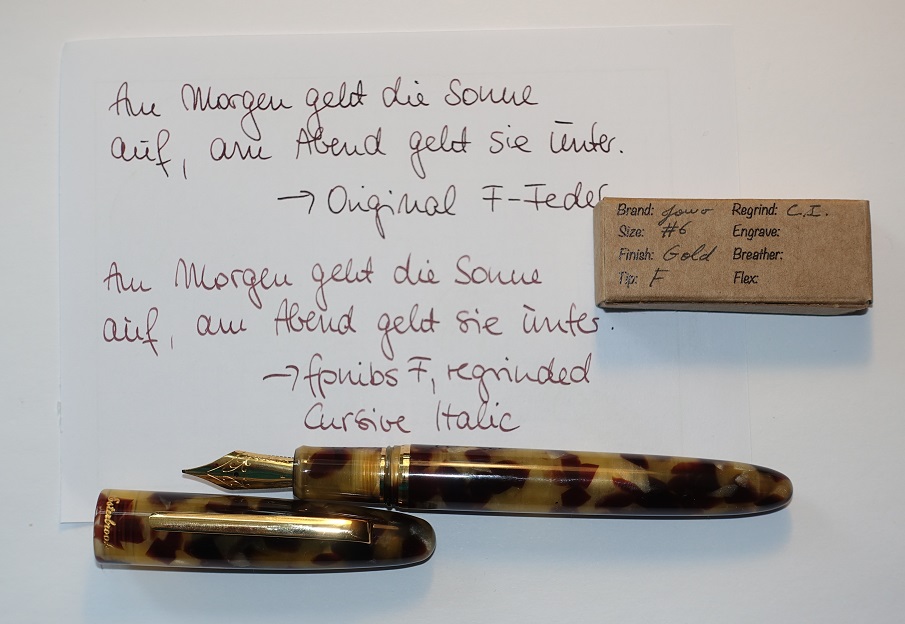 Am Morgen geht die Sonne
auf, am Abend geht sie unter.
→ Original F-Feder
Brand: Jowo Regrind: C.I.
Size: #6 Engrave:
Finish: Gold Breather:
Tip: F Flex:
Am Morgen geht die Sonne
auf, am Abend geht sie unter.
→ fpnibs F, regrinded
Cursive Italic
Esterbrook